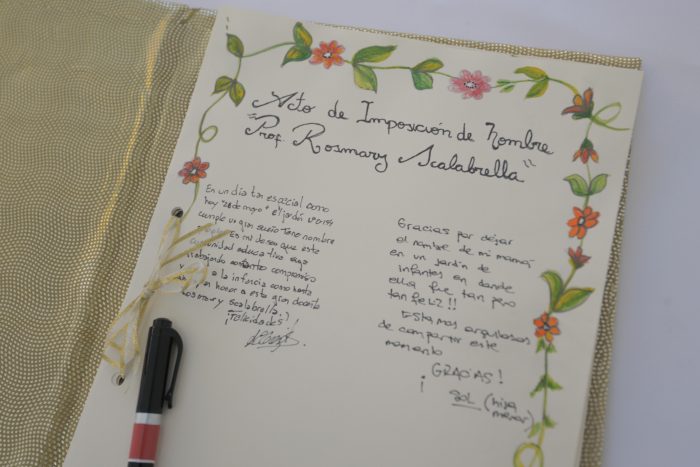 Acto de Imposición de Nombre
"Prof. Rosmary Scalabrella"
En un día tan especial como
hoy "28 de mayo" el jardín
cumple un gran sueño tiene nombre
es mi deseo que esta
comunidad educativa siga
trabajando compromiso
y a la infancia como
honor a esta gran docente
Rosmary Scalabrella.
¡Felicidades!
Gracias por dejar
el nombre de mi mamá
en un jardín de
infantes en donde
ella fue tan pero
tan feliz!!
Estamos orgullosos
de compartir este
momento
¡GRACIAS!
SOL (hija
menor)